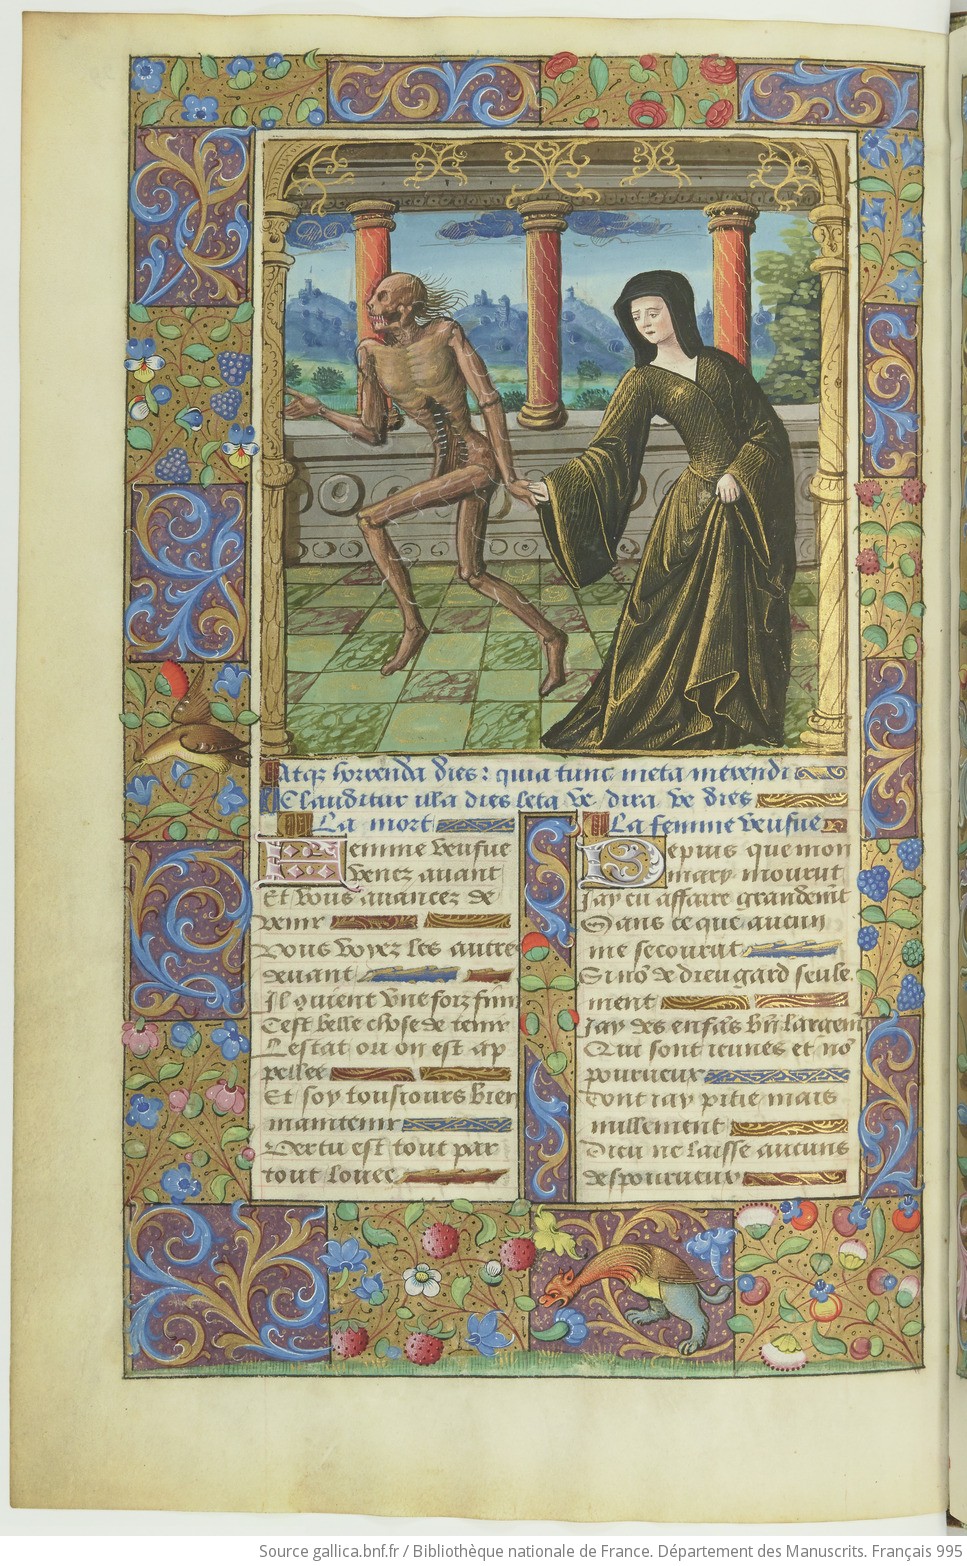 Atqz horrenda dies: quia tunc meta merendi
Clauditur illa dies leta ve dira ve dies
La mort
Femme veufue
venez auant
Et vous auancez de
venir
Vous voyez les autres
deuant
Il guient vne foiz finir
Cest belle chose de tenir
Lestat ou on est ap
pellee
Et soy tousiours bien
maintenir
Vertu est tout par
tout louee
La femme veufue
Depuis que mon
mary mourut
Jay eu affaire grandemt
Sans ce que aucun
me secourut
Si nō de dieu gard seule
ment
Jay des enfās bn largem
Qui sont ieunes et nō
pourueux
Dont iay pitie mais
nullement
Dieu ne laisse aucuns
despourueux
Source gallica.bnf.fr / Bibliothèque nationale de France. Département des Manuscrits. Français 995